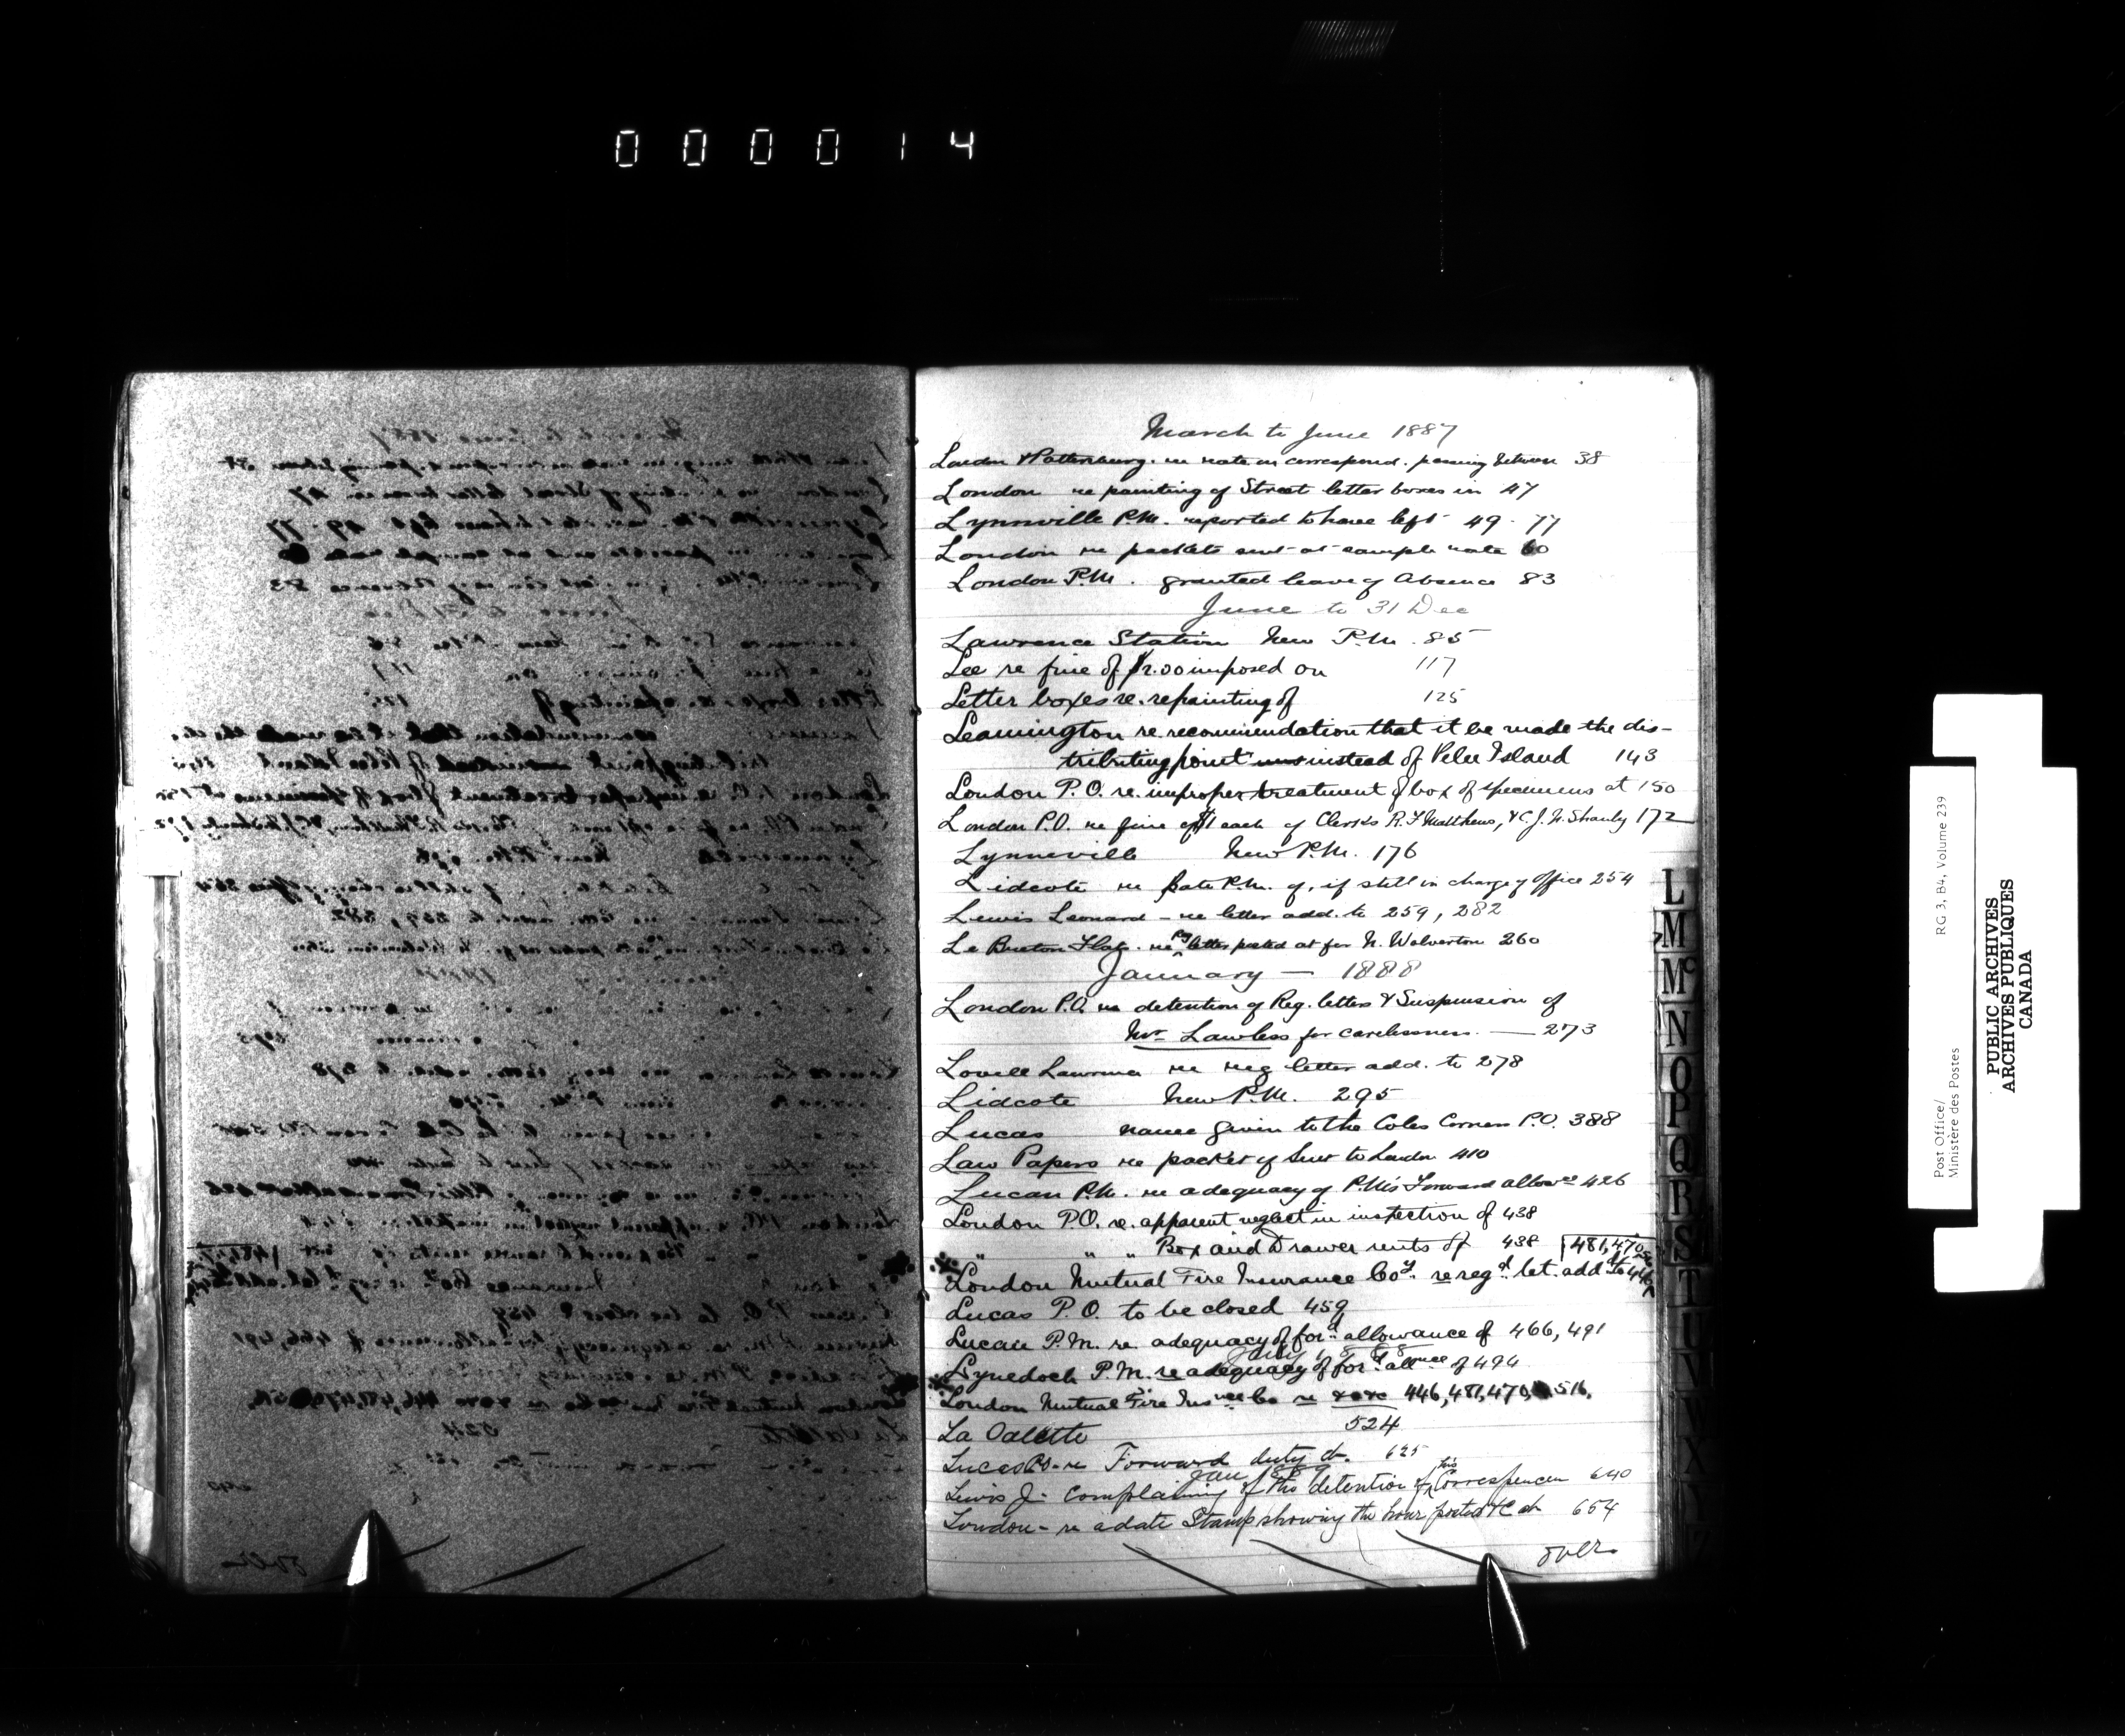 000014
March to June 1887
London & Pattersburg. re rate on correspond. passing between 38
London re painting of Street letter boxes in 47
Lynnville P.M. reported to have left 49-77
London re packets sent at sample rate 60
London P.M. granted leave of Absence 83
June to 31 Dec
Lawrence Station New P.M. 85
Lee re fine of $2.00 imposed on 117
Letter boxes re. repainting of 125
Leamington re. recommendation that it be made the dis-
tributing point instead of Pelee Island 143
London P.O. re. improper treatment of box of specimens at 150
London P.O. re fine of $1 each of Clerks R.F Matthews, & C.J.N. Shanly 172
Lynneville New P.M. 176
Lidcote re late P.M. of, if still in charge of Office 254
Lewis Leonard - re letter add. to 259, 282
Le Breton Flats. re reg letter posted at for N. Wolverton 260
January — 1888
London P.O. re detention of Reg. letters & Suspension of
Mr Lawless for carelessness. — 273
Lovell Laurena re reg letter add. to 278
Lidcote New P.M. 295
Lucas name given to the Coles Corners P.O. 388
Law Papers re packet of sent to London 410
Lucan P.M. re adequacy of P.M's Forward allowce 426
London P.O. re. apparent neglect in inspection of 438
" " " Box and Drawer rents of 438 481, 470
London Mutual Fire Insurance Coy. re regd. let. addd to 446
Lucas P.O. to be closed 459
Lucan P.M. re. adequacy of ford. allowance of 466, 491
July 1888
Lynedoch P.M. re adequacy of ford. allnce of 494
London Mutual Fire Insnce Co re 446, 481, 470, 516.
La Valette 524
Lucas P.O. re Forward duty at 625
Jan 1889
Lewis J. Complaining of the detention of his Correspencen 640
London - re a date Stamp showing the hour posted &c at 654
over
L
M
Mc
N
O
P
Q
R
S
T
U
V
W
X
Y
Z
Post Office/
Ministère des Postes
RG 3, B4, Volume 239
PUBLIC ARCHIVES
ARCHIVES PUBLIQUES
CANADA